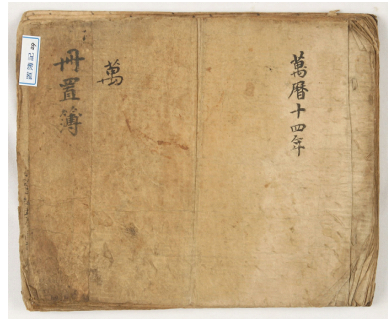 萬曆十四年
萬
冊置簿